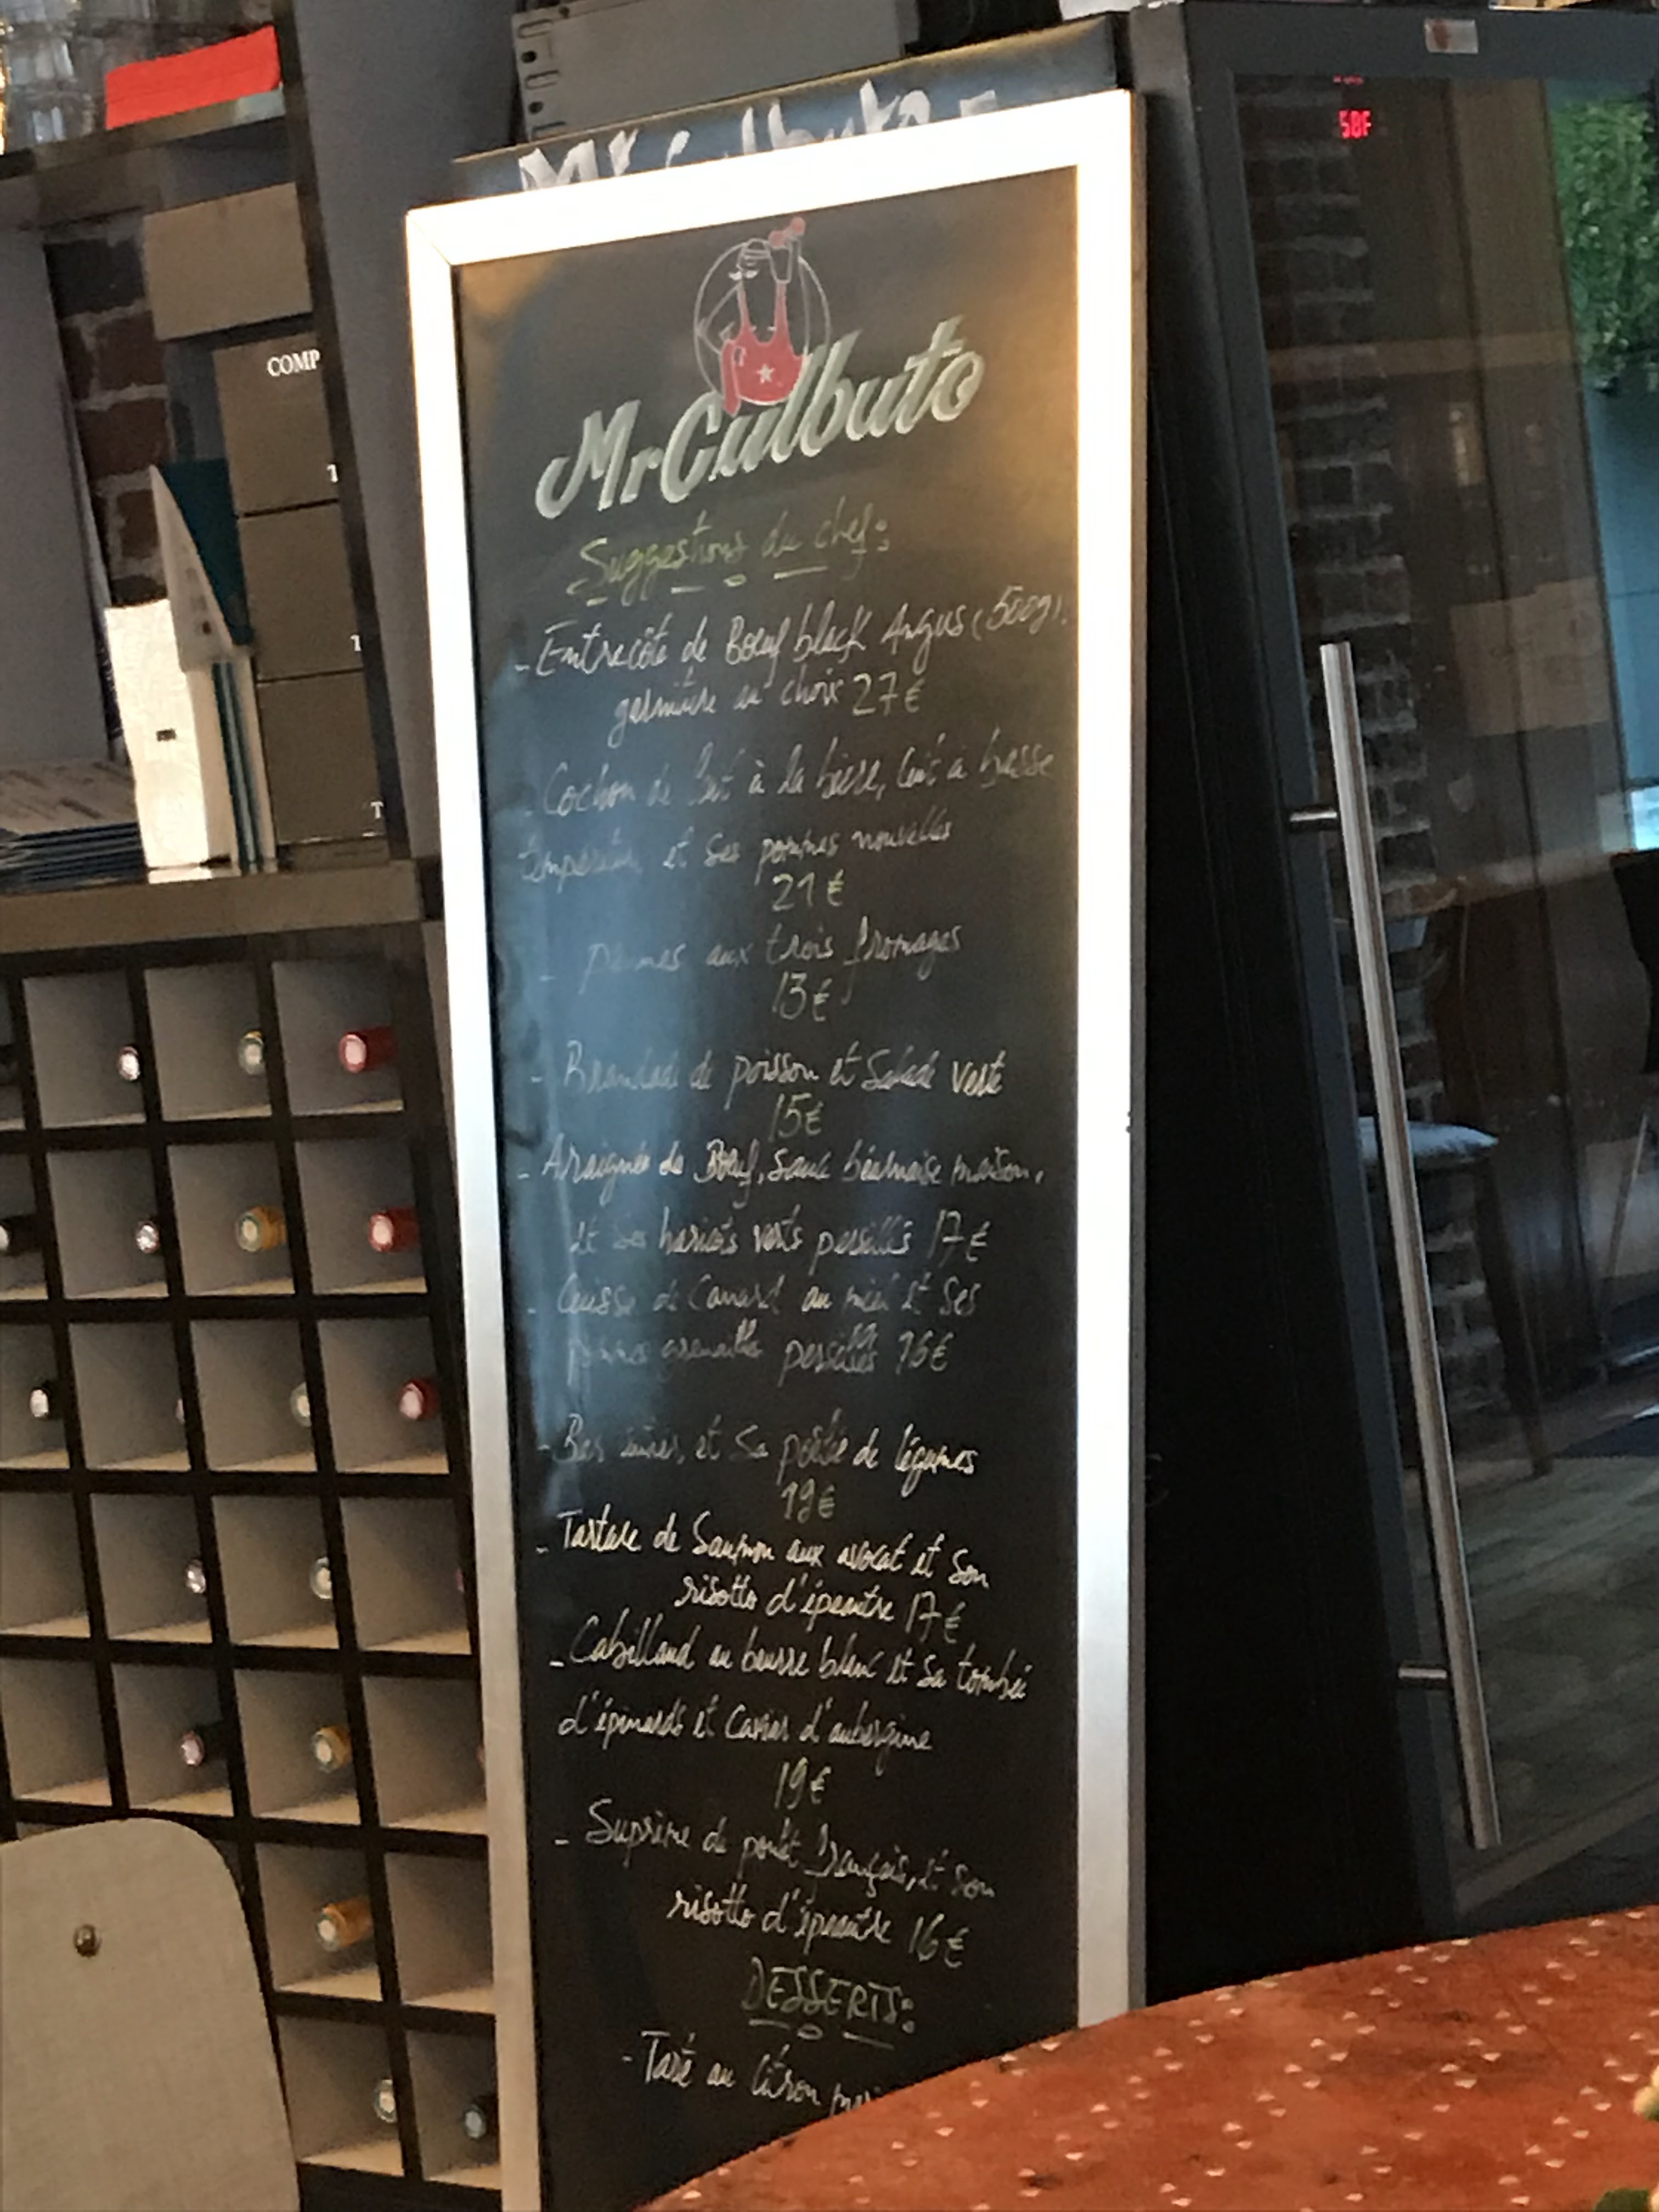 Mr Culbuto
COMP
T
T
T
58F
MrCulbuto
Suggestions du chef:
- Entrecôte de Boeuf black Angus (500g).
garniture au choix 27€
- Cochon de lait à la bière, cuit à basse
température, et ses pommes nouvelles
21€
- pennes aux trois fromages
13€
- Brandade de poisson et Salade verte
15€
- Araignée de Boeuf, sauce béarnaise maison,
et ses haricots verts persillés 17€
- Cuisse de Canard au miel et ses
pommes grenailles persillés 16€
- Bar entier, et Sa poêlée de légumes
19€
- Tartare de Saumon aux avocat et Son
risotto d'épeautre 17€
- Cabillaud au beurre blanc et Sa tombée
d'épinards et Caviar d'aubergine
19€
- Suprême de poulet français, et son
risotto d'épeautre 16€
DESSERTS:
- Tarte au Citron